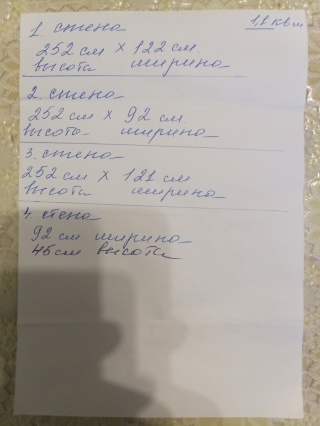 1,1 кв м
1. стена
252 см х 122 см.
высота ширина
2. стена
252 см х 92 см.
высота ширина
3. стена
252 см х 121 см
высота ширина
4. стена
92 см ширина
45 см высота